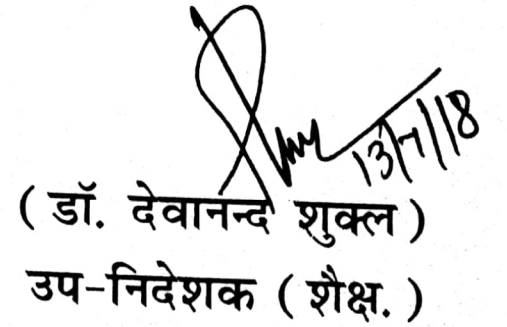 13/7/18
( डॉ. देवानन्द शुक्ल )
उप-निदेशक ( शैक्ष. )